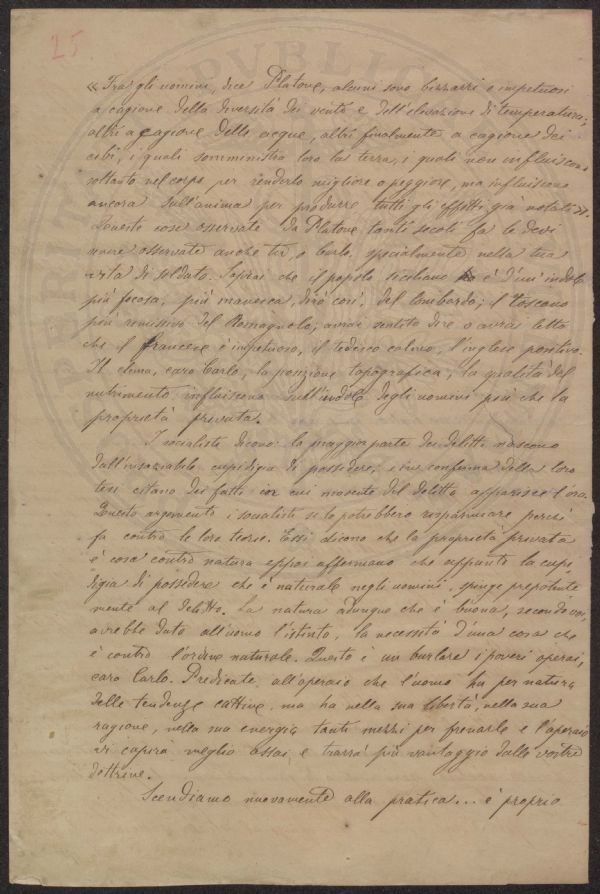 25
« Fra gli uomini, dice Platone, alcuni sono bizzarri e impetuosi
a cagione della diversità dei venti e dell'elevazione di temperatura;
altri a cagione delle acque, altri finalmente a cagione dei
cibi, i quali somministra loro la terra, i quali non influiscono
soltanto nel corpo per renderlo migliore o peggiore, ma influiscono
ancora sull'anima per produrre tutti gli effetti già notati ».
Queste cose osservate da Platone tanti secoli fa le devi
avere osservate anche tu, o Carlo, specialmente nella tua
vita di soldato. Saprai che il popolo siciliano è d'un'indole
più focosa, più manesca, dirò così, del lombardo; il toscano
più remissivo del Romagnolo; avrai sentito dire o avrai letto
che il francese è impetuoso, il tedesco calmo, l'inglese positivo.
Il clima, caro Carlo, la posizione topografica, la qualità del
nutrimento influiscono sull'indole degli uomini più che la
proprietà privata.
I socialisti dicono: la maggior parte dei delitti nascono
dall'insaziabile cupidigia di possedere; e in conferma della loro
tesi citano dei fatti in cui movente del delitto apparisce l'oro.
Questo argomento i socialisti se lo potrebbero risparmiare perchè
fa contro le loro teorie. Essi dicono che la proprietà privata
è cosa contro natura eppoi affermano che appunto la cupi-
digia di possedere che è naturale negli uomini, spinge prepotente
mente al delitto. La natura adunque che è buona, secondo voi,
avrebbe dato all'uomo l'istinto, la necessità d'una cosa che
è contro l'ordine naturale. Questo è un burlare i poveri operai,
caro Carlo. Predicate all'operaio che l'uomo ha per natura
delle tendenze cattive, ma ha nella sua libertà, nella sua
ragione, nella sua energia tanti mezzi per frenarle e l'operaio
vi capirà meglio assai e trarrà più vantaggio dalle vostre
dottrine.
Scendiamo nuovamente alla pratica... è proprio